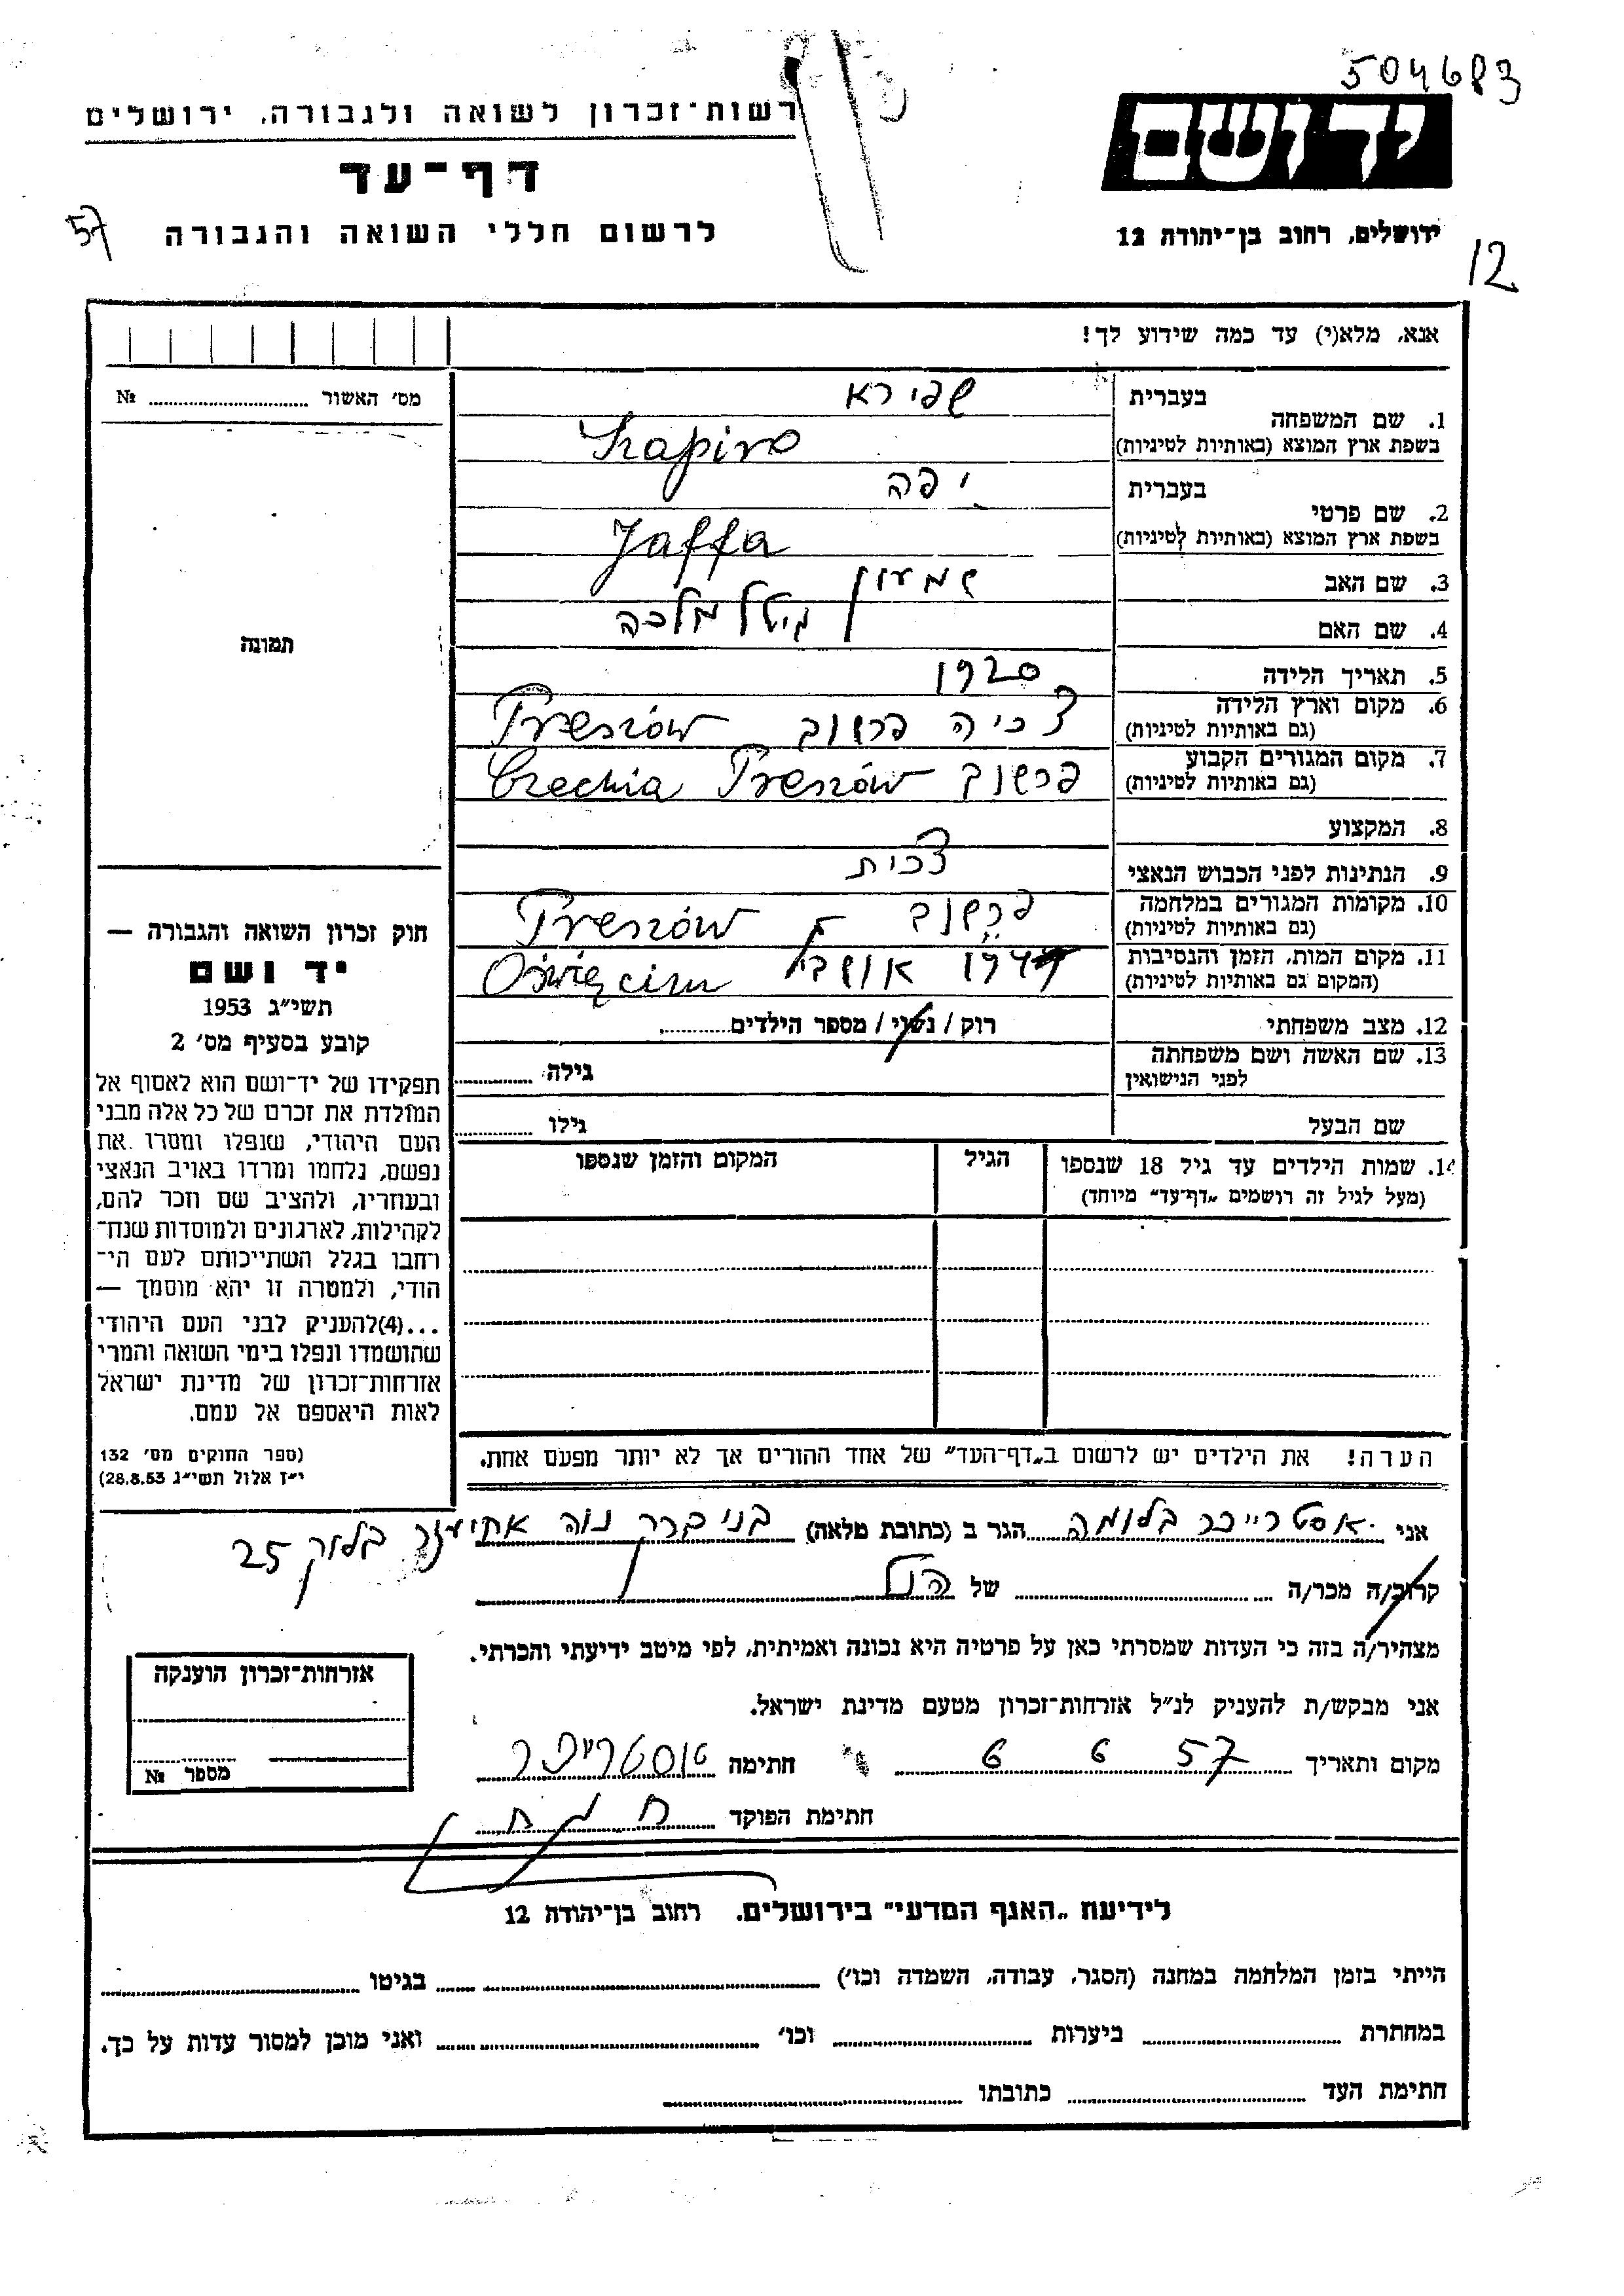 504683
רשות־זכרון לשואה ולגבורה, ירושלים
ידושם
דף־עד
57
לרשום חללי השואה והגבורה
ירושלים, רחוב בן־יהודה 12
12
אנא, מלא(י) עד כמה שידוע לך!
מס׳ האשור № 
בעברית שפירא
1. שם המשפחה
בשפת ארץ המוצא (באותיות לטיניות) Szapiro
בעברית יפה
2. שם פרטי
בשפת ארץ המוצא (באותיות לטיניות) Jaffa
3. שם האב שמעון
4. שם האם גיטל מלכה
תמונה
5. תאריך הלידה 1920
6. מקום וארץ הלידה
(גם באותיות לטיניות) צ׳כיה פרשוב Preszów
7. מקום המגורים הקבוע
(גם באותיות לטיניות) פרשוב Preszów Czechia
8. המקצוע
9. הנתינות לפני הכבוש הנאצי צ׳כית
10. מקומות המגורים במלחמה
(גם באותיות לטיניות) פרשוב Preszów
11. מקום המות, הזמן והנסיבות
(המקום גם באותיות לטיניות) Oświęcim
12. מצב משפחתי רוק / נשוי / מספר הילדים
13. שם האשה ושם משפחתה
לפני הנישואין גילה
שם הבעל גילו
14. שמות הילדים עד גיל 18 שנספו הגיל המקום והזמן שנספו
(מעל לגיל זה רושמים „דף־עד״ מיוחד)
חוק זכרון השואה והגבורה —
יד ושם
תשי״ג 1953
קובע בסעיף מס׳ 2
תפקידו של יד־ושם הוא לאסוף אל
המולדת את זכרם של כל אלה מבני
העם היהודי, שנפלו ומסרו את
נפשם, נלחמו ומרדו באויב הנאצי
ובעוזריו, ולהציב שם וזכר להם,
לקהילות, לארגונים ולמוסדות שנח־
רחבו בגלל השתייכותם לעם הי־
הודי, ולמטרה זו יהא מוסמך —
...(4)להעניק לבני העם היהודי
שהושמדו ונפלו בימי השואה והמרי
אזרחות־זכרון של מדינת ישראל
לאות היאספם אל עמם.
(ספר החוקים מס׳ 132
י״ז אלול תשי״ג 28.8.53)
הערה! את הילדים יש לרשום ב„דף־העד״ של אחד ההורים אך לא יותר מפעם אחת.
אני אוסטרייכר בלומה הגר ב (כתובת מלאה) בני ברק נוה אחיעזר בלוק 25
קרוב/ה מכר/ה של הנ״ל
מצהיר/ה בזה כי העדות שמסרתי כאן על פרטיה היא נכונה ואמיתית, לפי מיטב ידיעתי והכרתי.
אני מבקש/ת להעניק לנ״ל אזרחות־זכרון מטעם מדינת ישראל.
מקום ותאריך 57 6 6 חתימה אוסטרייכר
חתימת הפוקד
אזרחות־זכרון הוענקה
מספר №
לידיעת „האגף המדעי״ בירושלים, רחוב בן־יהודה 12
הייתי בזמן המלחמה במחנה (הסגר, עבודה, השמדה וכו׳) בגיטו
במחתרת ביערות וכו׳ ואני מוכן למסור עדות על כך.
חתימת העד כתובתו